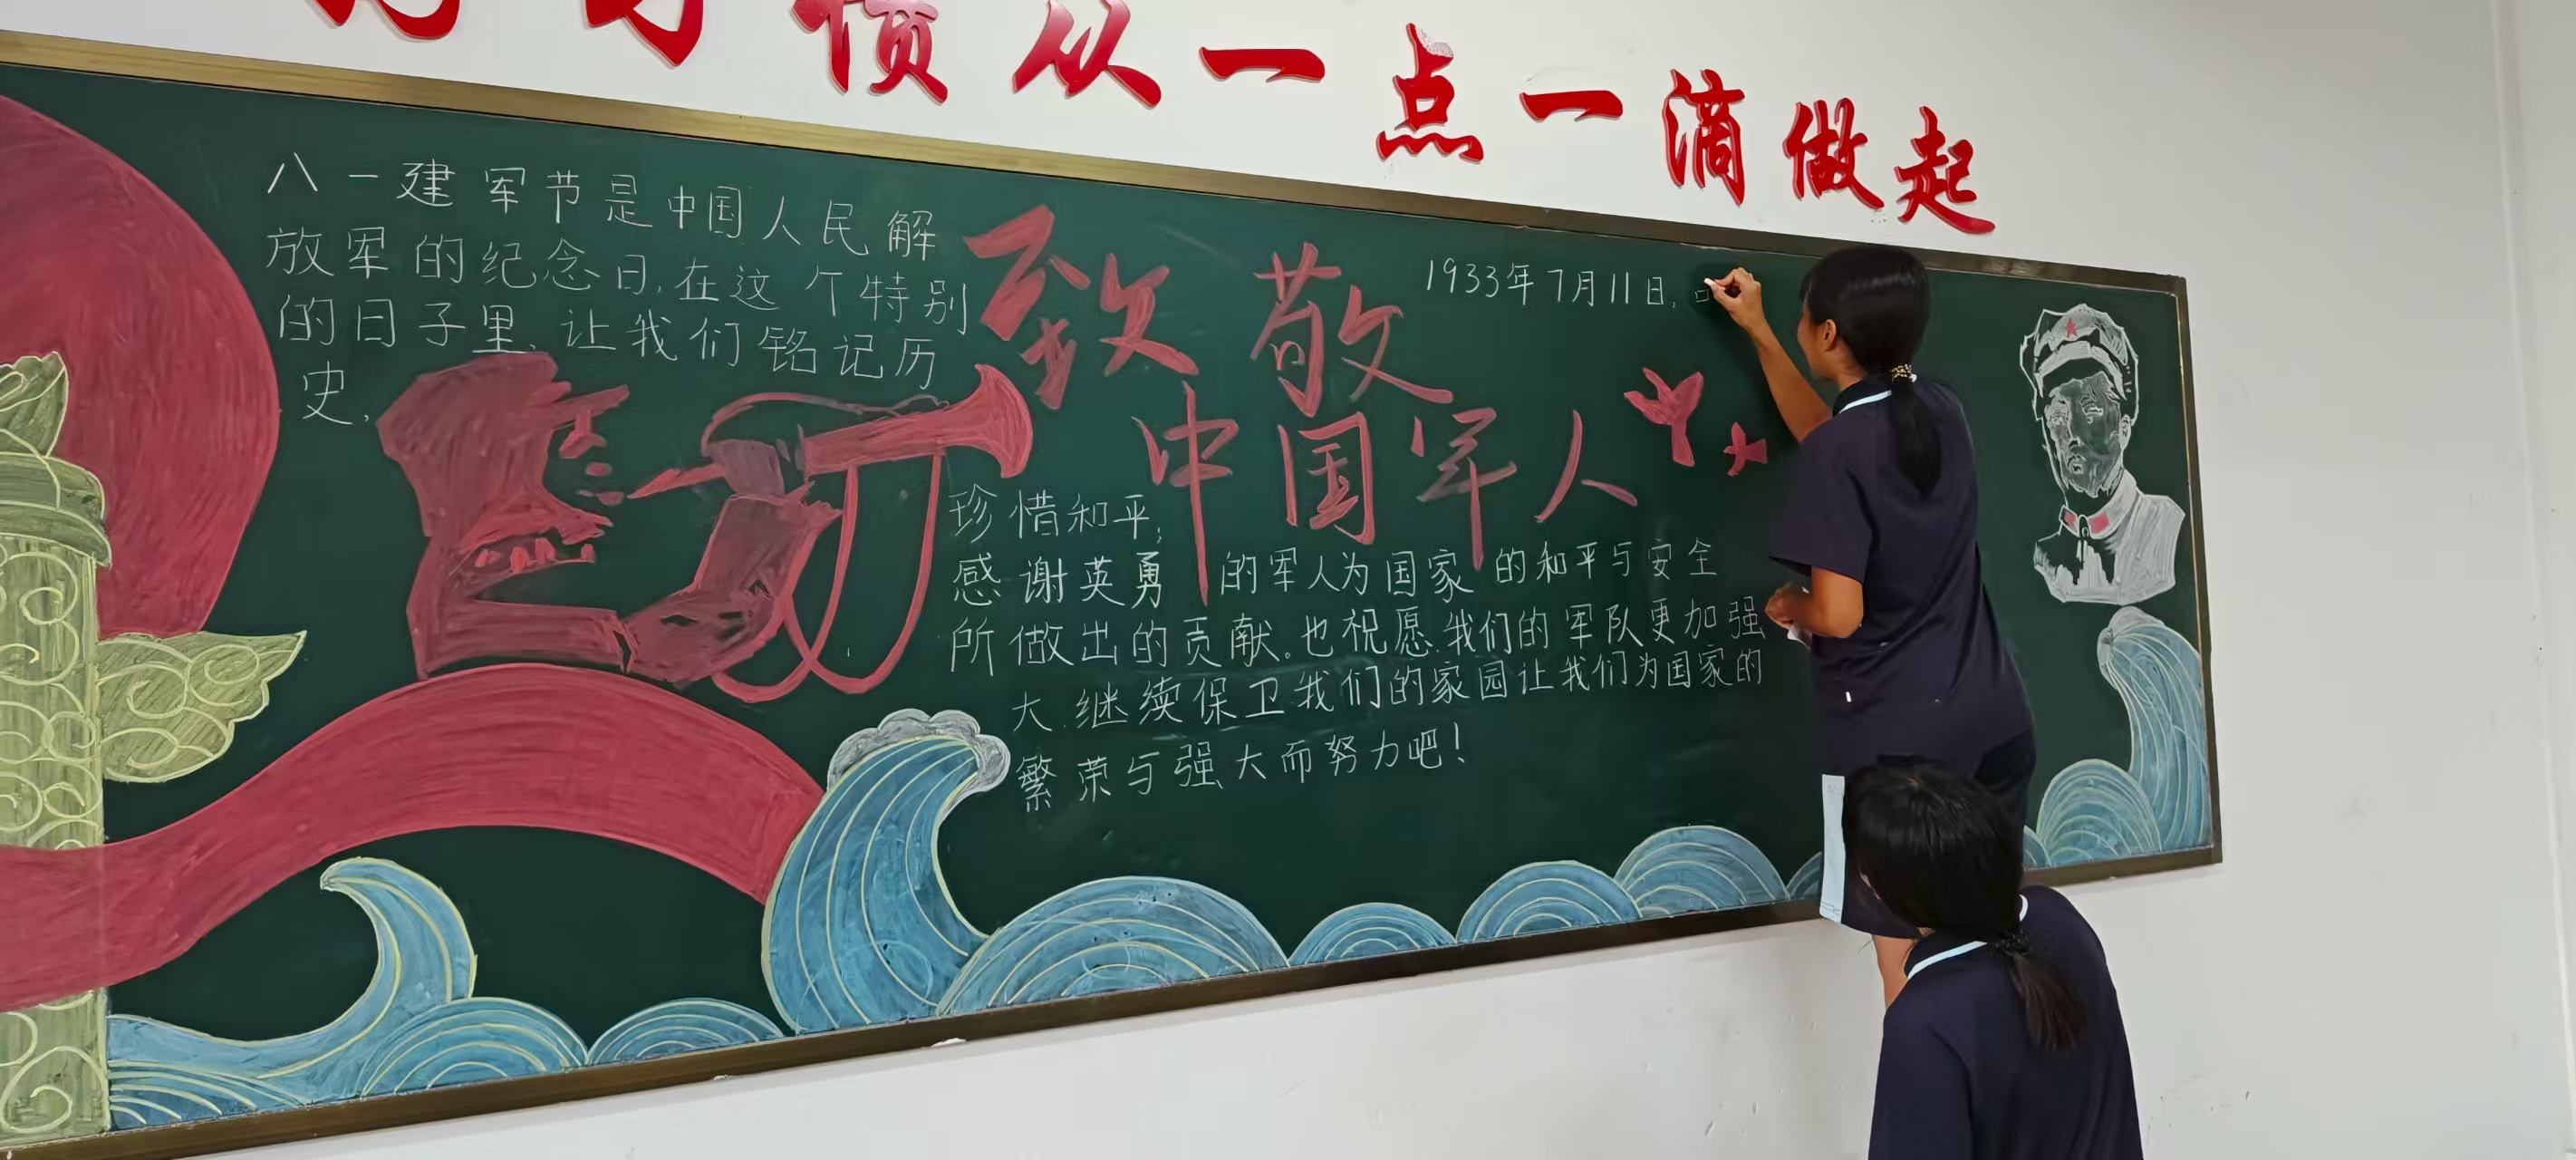 惯从一点一滴做起
八一建军节是中国人民解
放军的纪念日,在这个特别
的日子里,让我们铭记历
史,
致敬
中国军人
1933年7月11日,
珍惜和平;
感谢英勇的军人为国家的和平与安全
所做出的贡献。也祝愿我们的军队更加强
大.继续保卫我们的家园让我们为国家的
繁荣与强大而努力吧!